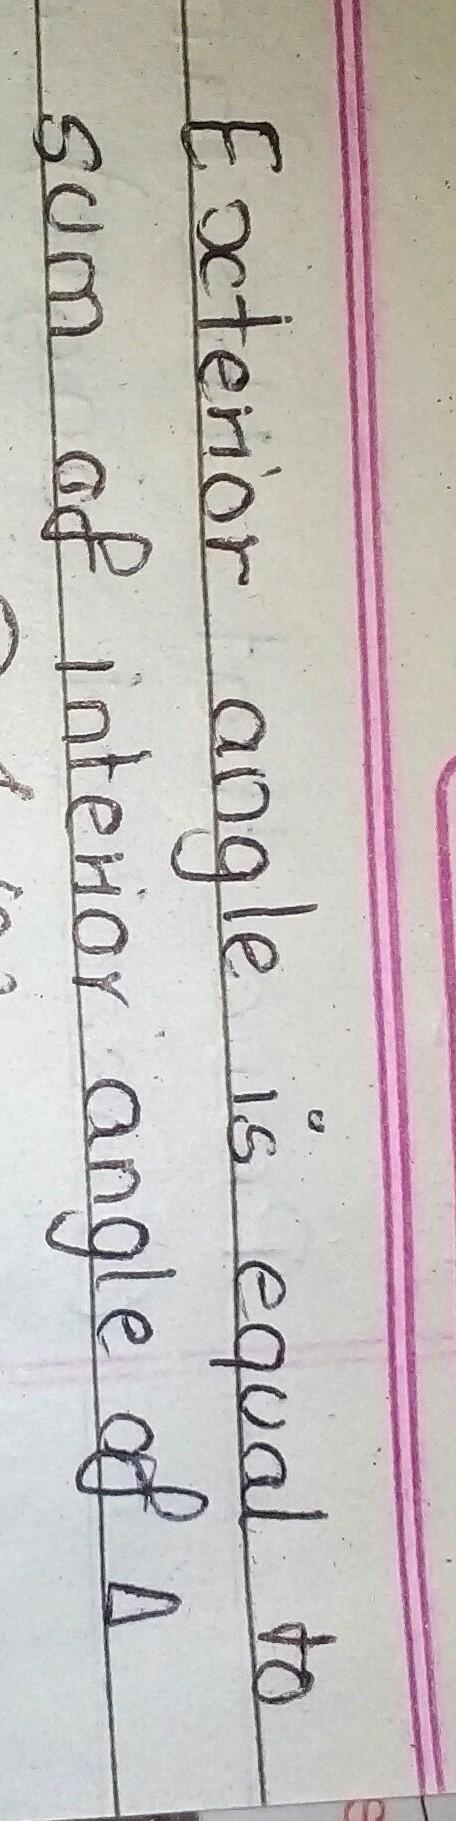 Exterior angle is equal to
sum of interior angle of Δ